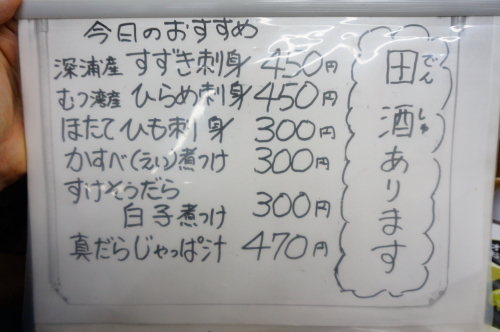 今日のおすすめ
深浦産 すずき刺身 450円
むつ湾産 ひらめ刺身 450円
ほたてひも刺身 300円
かすべ(えい)煮つけ 300円
すけそうだら
白子煮つけ 300円
真だらじゃっぱ汁 470円
田酒あります
でんしゅ